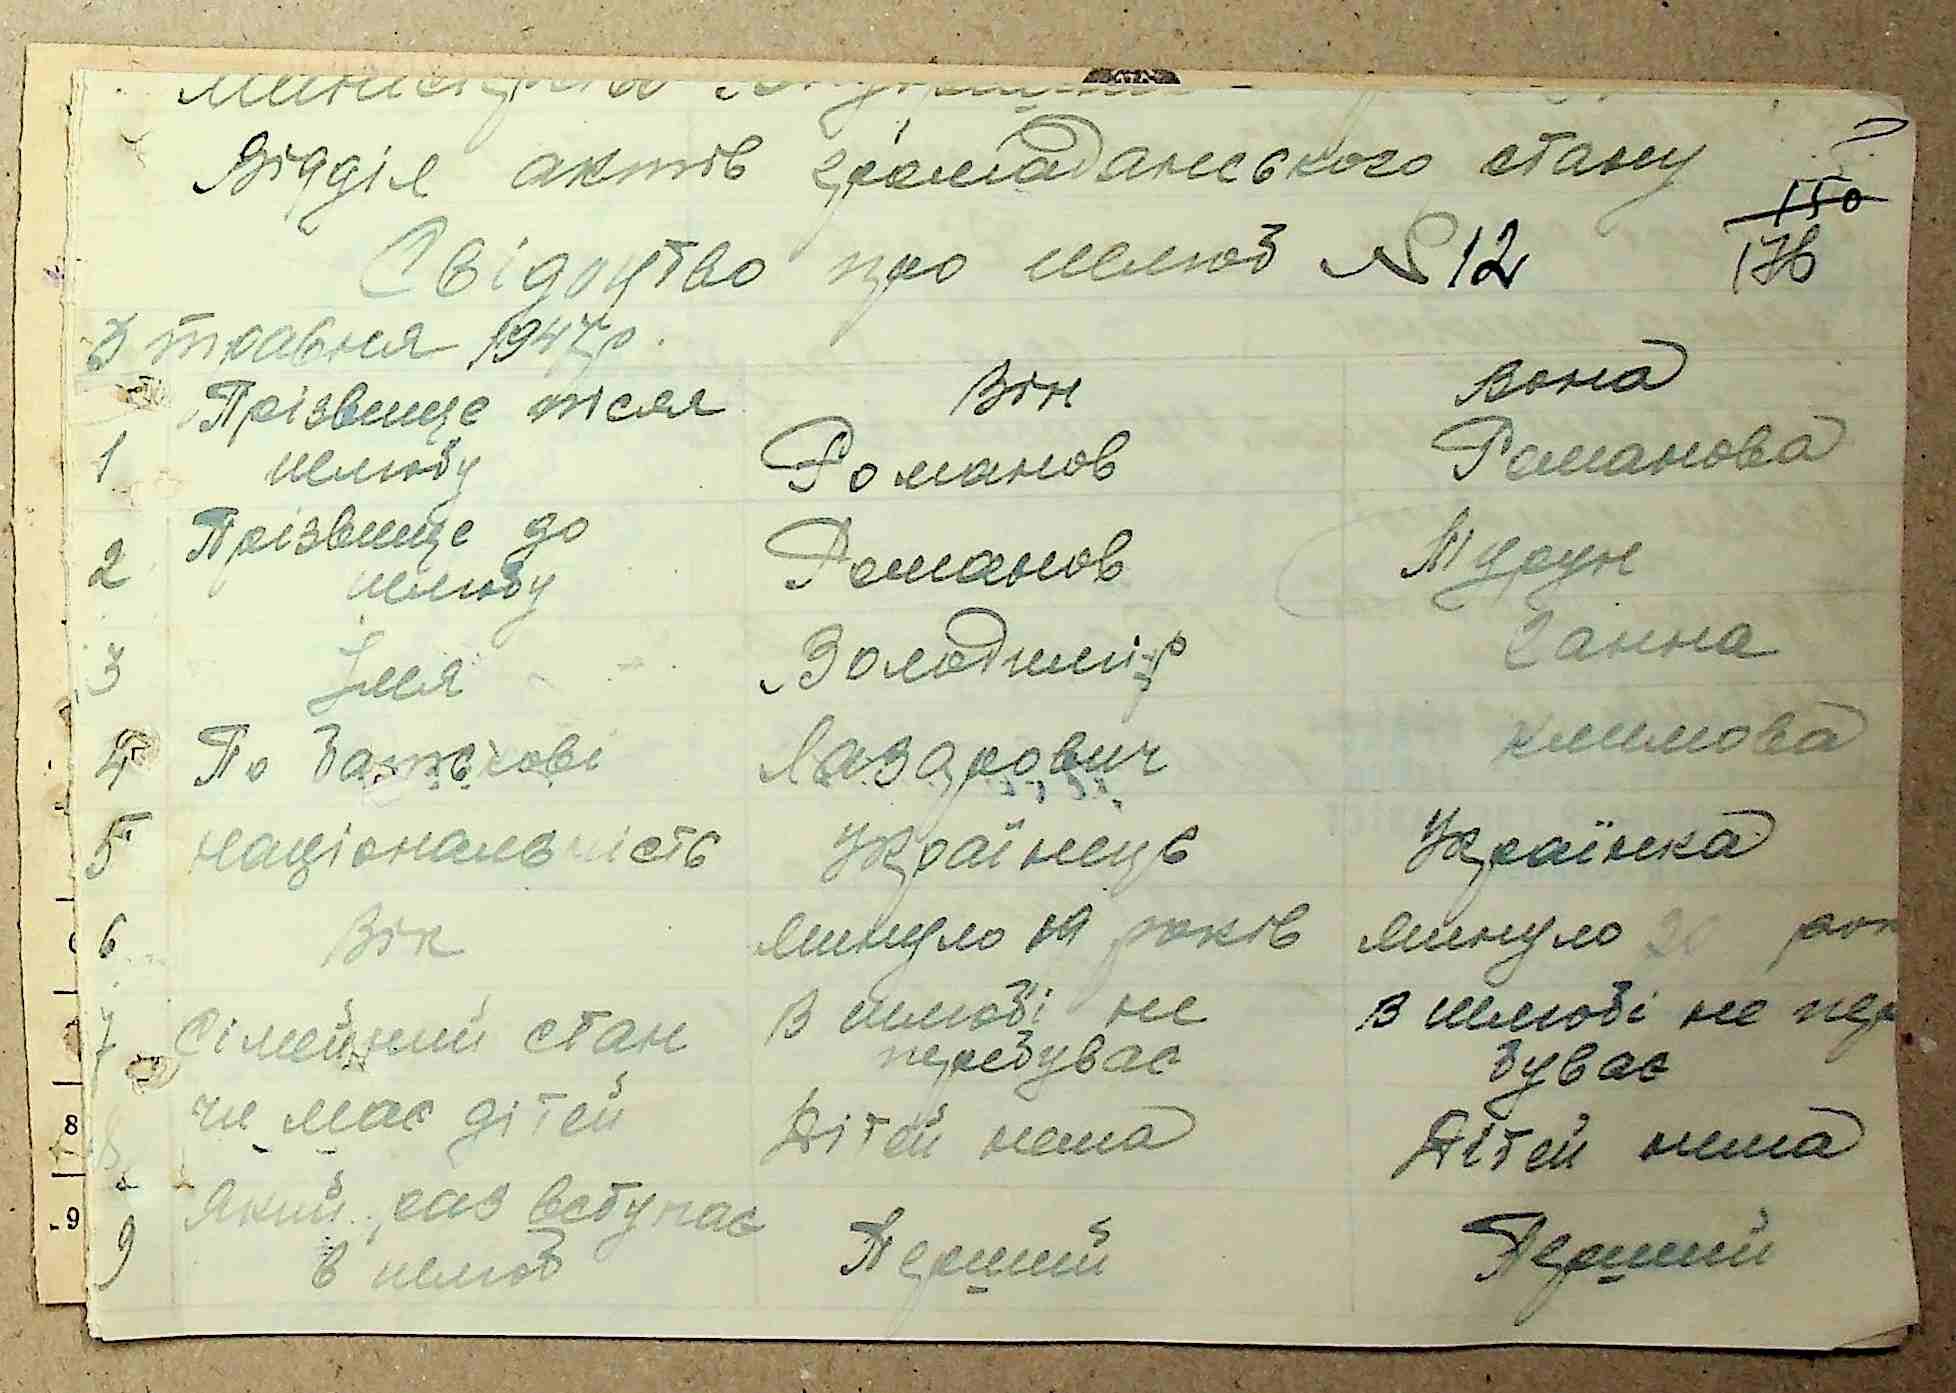 Міністерство внутрішніх
Відділ актів громадянського стану
150
Свідоцтво про шлюб № 12 176
3 травня 1947 р.
Він Вона
1 Прізвище після шлюбу Романов Романова
2 Прізвище до шлюбу Романов Турун
3 Імя Володимір Ганна
4 По Батькові Лазарович Климова
5 Національність Українець Українка
6 Вік минуло 19 років минуло 20 рок
7 Сімейний стан В шлюбі не перебуває В шлюбі не пере
буває
8 чи має дітей Дітей нема Дітей нема
9 Який раз вступає в шлюб Перший Перший
8
-9